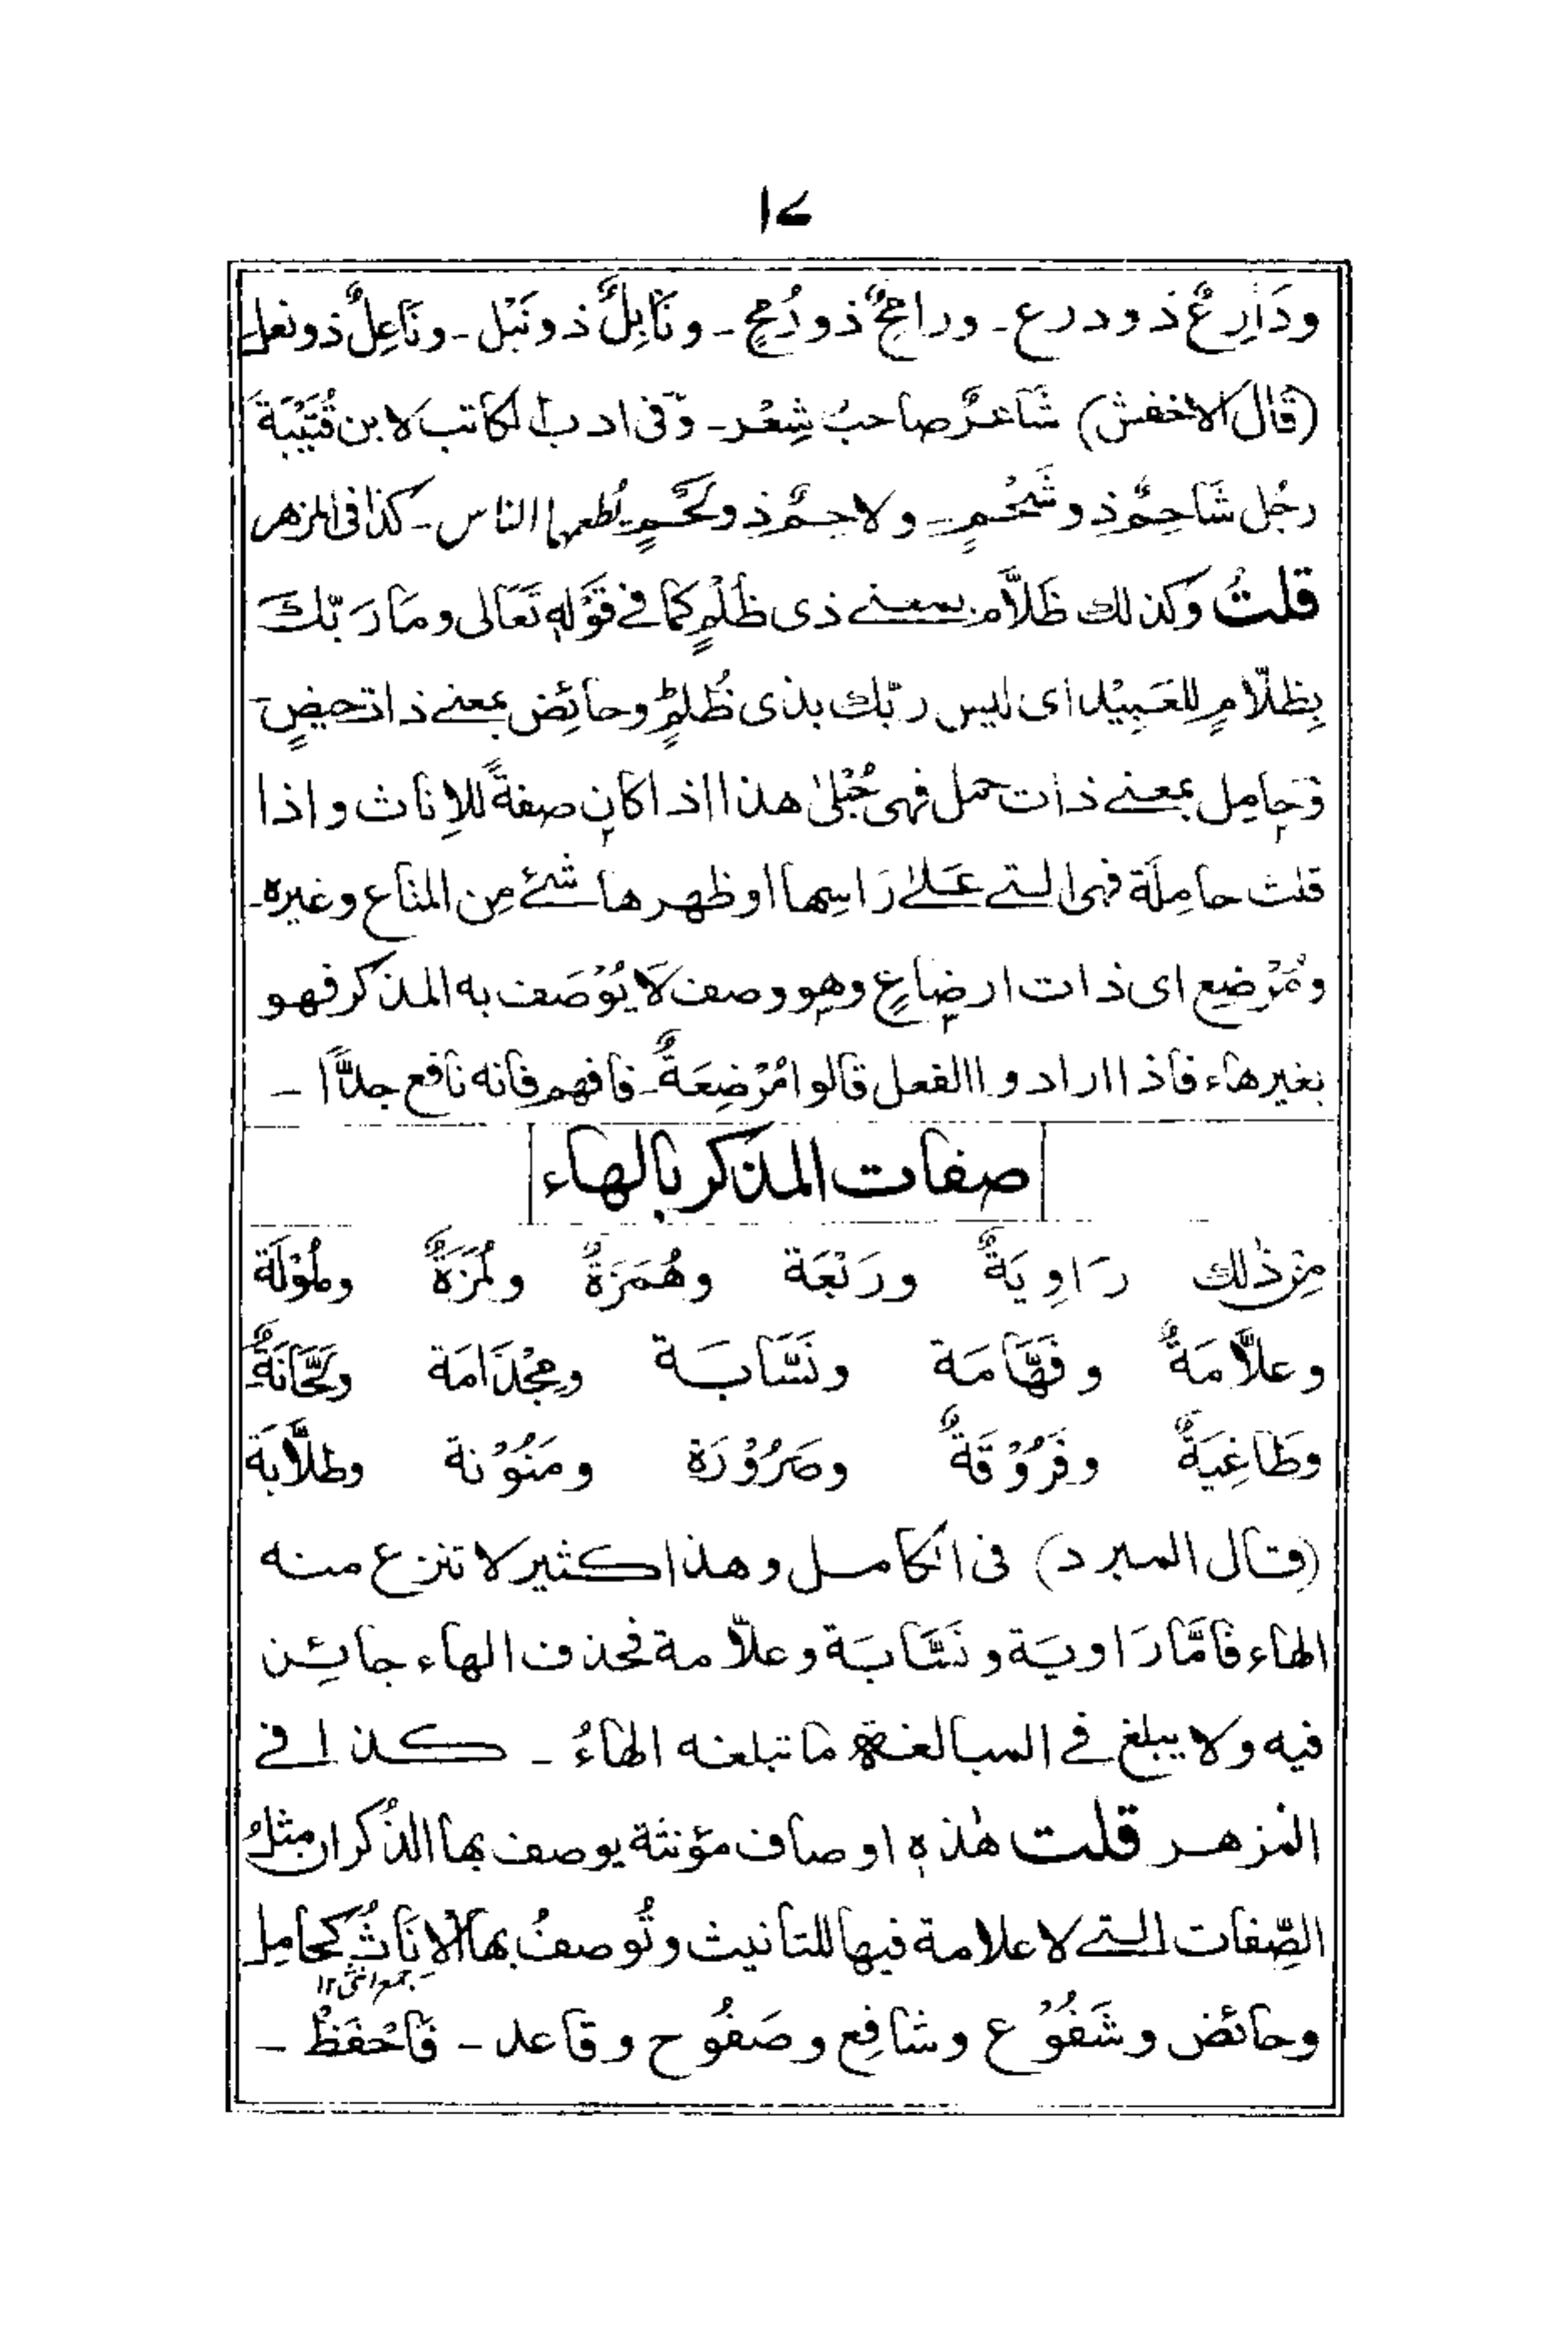 ١٧
ودَارِعٌ ذو درع ـ ورامحٌ ذو رُمحٍ ـ ونَابِلٌ ذو نَبْل ـ ونَاعِلٌ ذو نعل
(قال الاخفش) شَاعرٌ صاحبُ شِعْر ـ وفى ادب الكاتب لابن قُتَيْبَةَ
رجُل شَاحِمٌ ذو شَحْمٍ ـ ولاحِمٌ ذو لَحْمٍ يُطعمهما الناس ـ كذا فى المزهر
قلتُ وكذلك ظَلاَّم بمعنے ذى ظُلْمٍ كما فے قَوْلِهٖ تَعَالى وما رَبّكَ
بِظلّامٍ للعَبِيْد اى ليس ربّك بذى ظُلمٍ وحائِض بمعنے ذات حيضٍ
وَحامِل بمعنے ذات حمل فهى حُبْلىٰ هذا اذا كان صفةً للاِناث واذا
قلت حامِلَة فهى التے عَلےٰ رَاسِها او ظهرها شئے مِن المتاع وغيره ـ
ومُرْضِع اى ذات ارضاعٍ وهو وصف لَا يُوْصَف به المذكر فهو
بغير هاء فاذا ارادوا الفعل قالوا مُرْضِعَةٌ ـ فافهم فانه نافع جدًّا ـ
صفات المذكر بالهاء
مِنْ ذٰلك رَاوِيَةٌ ورَبْعَة وهُمَزَةٌ ولُمَزَةٌ وملُوْلَة
وعلاَّمَةٌ وفَهَّامَة ونَسَّابَة ومِجْذَامَة ولَحَّانَةٌ
وطَاغِيَةٌ وفَرُوْقَةٌ وصَرُوْرَة ومَنُوْنة وطلاَّبَة
(قال المبرد) فى الكامل وهذا كثير لا تنزع منه
الهاء فامَّا رَاويَة ونَسَّابَة وعلاّمة فحذف الهاء جائِز
فيه ولا يبلغ فے المبالغة ما تبلغه الهاءُ ـ كذا فے
المزهر قلت هٰذهٖ اوصاف مؤنثة يوصف بها الذُكران مثلُ
الصِّفات التے لا علامة فيها للتأنيث وتُوصفُ بها الاِنَاثُ كحامِل
جمع انثى ١٢
وحائض وشَفُوْع وشافِع وصَفُوح وقاعد ـ فَاحْفَظْ ـ